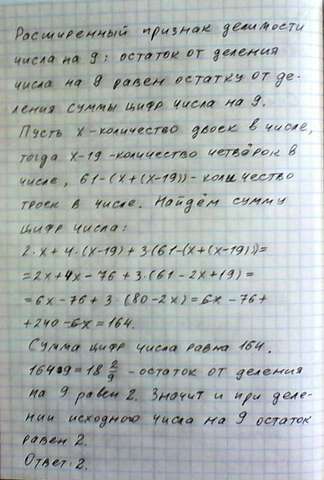 Расширенный признак делимости
числа на 9: остаток от деления
числа на 9 равен остатку от де-
ления суммы цифр числа на 9.
Пусть х-количество двоек в числе,
тогда х-19-количество четвёрок в
числе, 61-(х+(х-19))-количество
троек в числе. Найдём сумму
цифр числа:
2·х+4·(х-19)+3(61-(х+(х-19))=
=2х+4х-76+3·(61-2х+19)=
=6х-76+3·(80-2х)=6х-76+
+240-6х=164.
Сумма цифр числа равна 164.
164:9=18 2/9 -остаток от деления
на 9 равен 2. Значит и при деле-
нии исходного числа на 9 остаток
равен 2.
Ответ: 2.